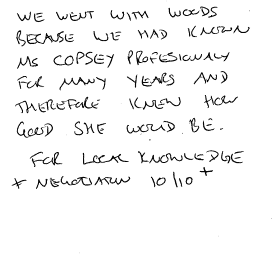 WE WENT WITH WOODS
BECAUSE WE HAD KNOWN
MS COPSEY PROFESIONALY
FOR MANY YEARS AND
THEREFORE KNEW HOW
GOOD SHE WOULD BE.
FOR LOCAL KNOWLEDGE
+ NEGOTIATION 10/10 +